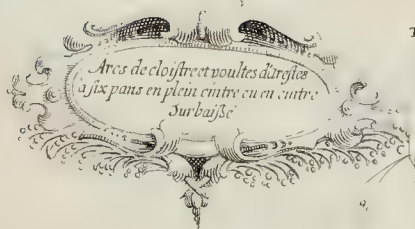 Arcs de cloistre et voultes d'arestes
à six pans en plein cintre ou en cintre
Surbaißé